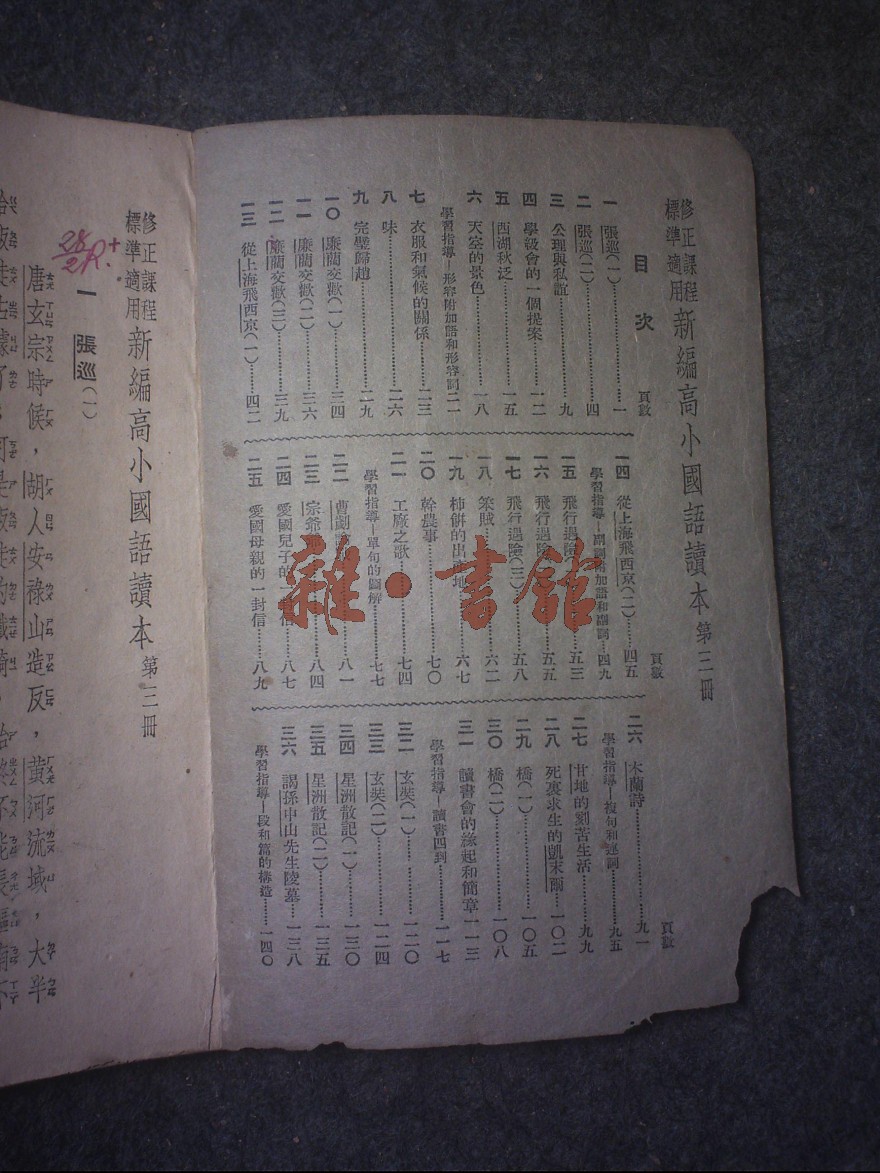 修正課程
標準適用
新編高小國語讀本 第三冊
目次
頁數
一 張巡(一)………一
二 張巡(二)………四
三 公理與私誼………九
四 學級會的一個提案………一二
五 西湖秋泛………一五
六 天空的景色………一八
學習指導—形容附加語和形容詞 二一
七 衣服和氣候的關係………二三
八 味………二六
九 完璧歸趙………二九
一〇 廉藺交歡(一)………三四
一一 廉藺交歡(二)………三六
一二 廉藺交歡(三)………三九
一三 從上海飛西京(一)………四二
頁數
一四 從上海飛西京(二)………四五
學習指導—副詞附加語和副詞………四九
一五 飛行遇險………五三
一六 飛行遇險………五五
一七 飛行遇險(三)………五八
一八 笨賊………六二
一九 柿餅的出地………六七
二〇 幹農事………七〇
二一 工廠之歌………七四
學習指導—單句的圖解………七七
二二 曹劌………八一
二三 宗爺爺………八四
二四 愛國兒子的一封信………八七
二五 愛國母親的一封信………八九
頁數
二六 木蘭詩………九一
學習指導—複句和連詞………九五
二七 甘地的刻苦生活………九九
二八 死裏求生的凱末爾………一〇二
二九 橋(一)………一〇五
三〇 橋(二)………一〇八
三一 讀書會的緣起和簡章 一一三
學習指導—讀書四到………一一七
三二 玄奘(一)………一二〇
三三 玄奘(二)………一二四
三四 星洲散記(一)………一三〇
三五 星洲散記(二)………一三五
三六 謁孫中山先生陵墓………一三八
學習指導—段和篇的構造………一四〇
雜·書館
修正課程
標準適用
新編高小國語讀本 第三冊
28/2R.+
一 張巡(一)
唐玄宗時候,胡人安祿山造反,黃河流域,大半